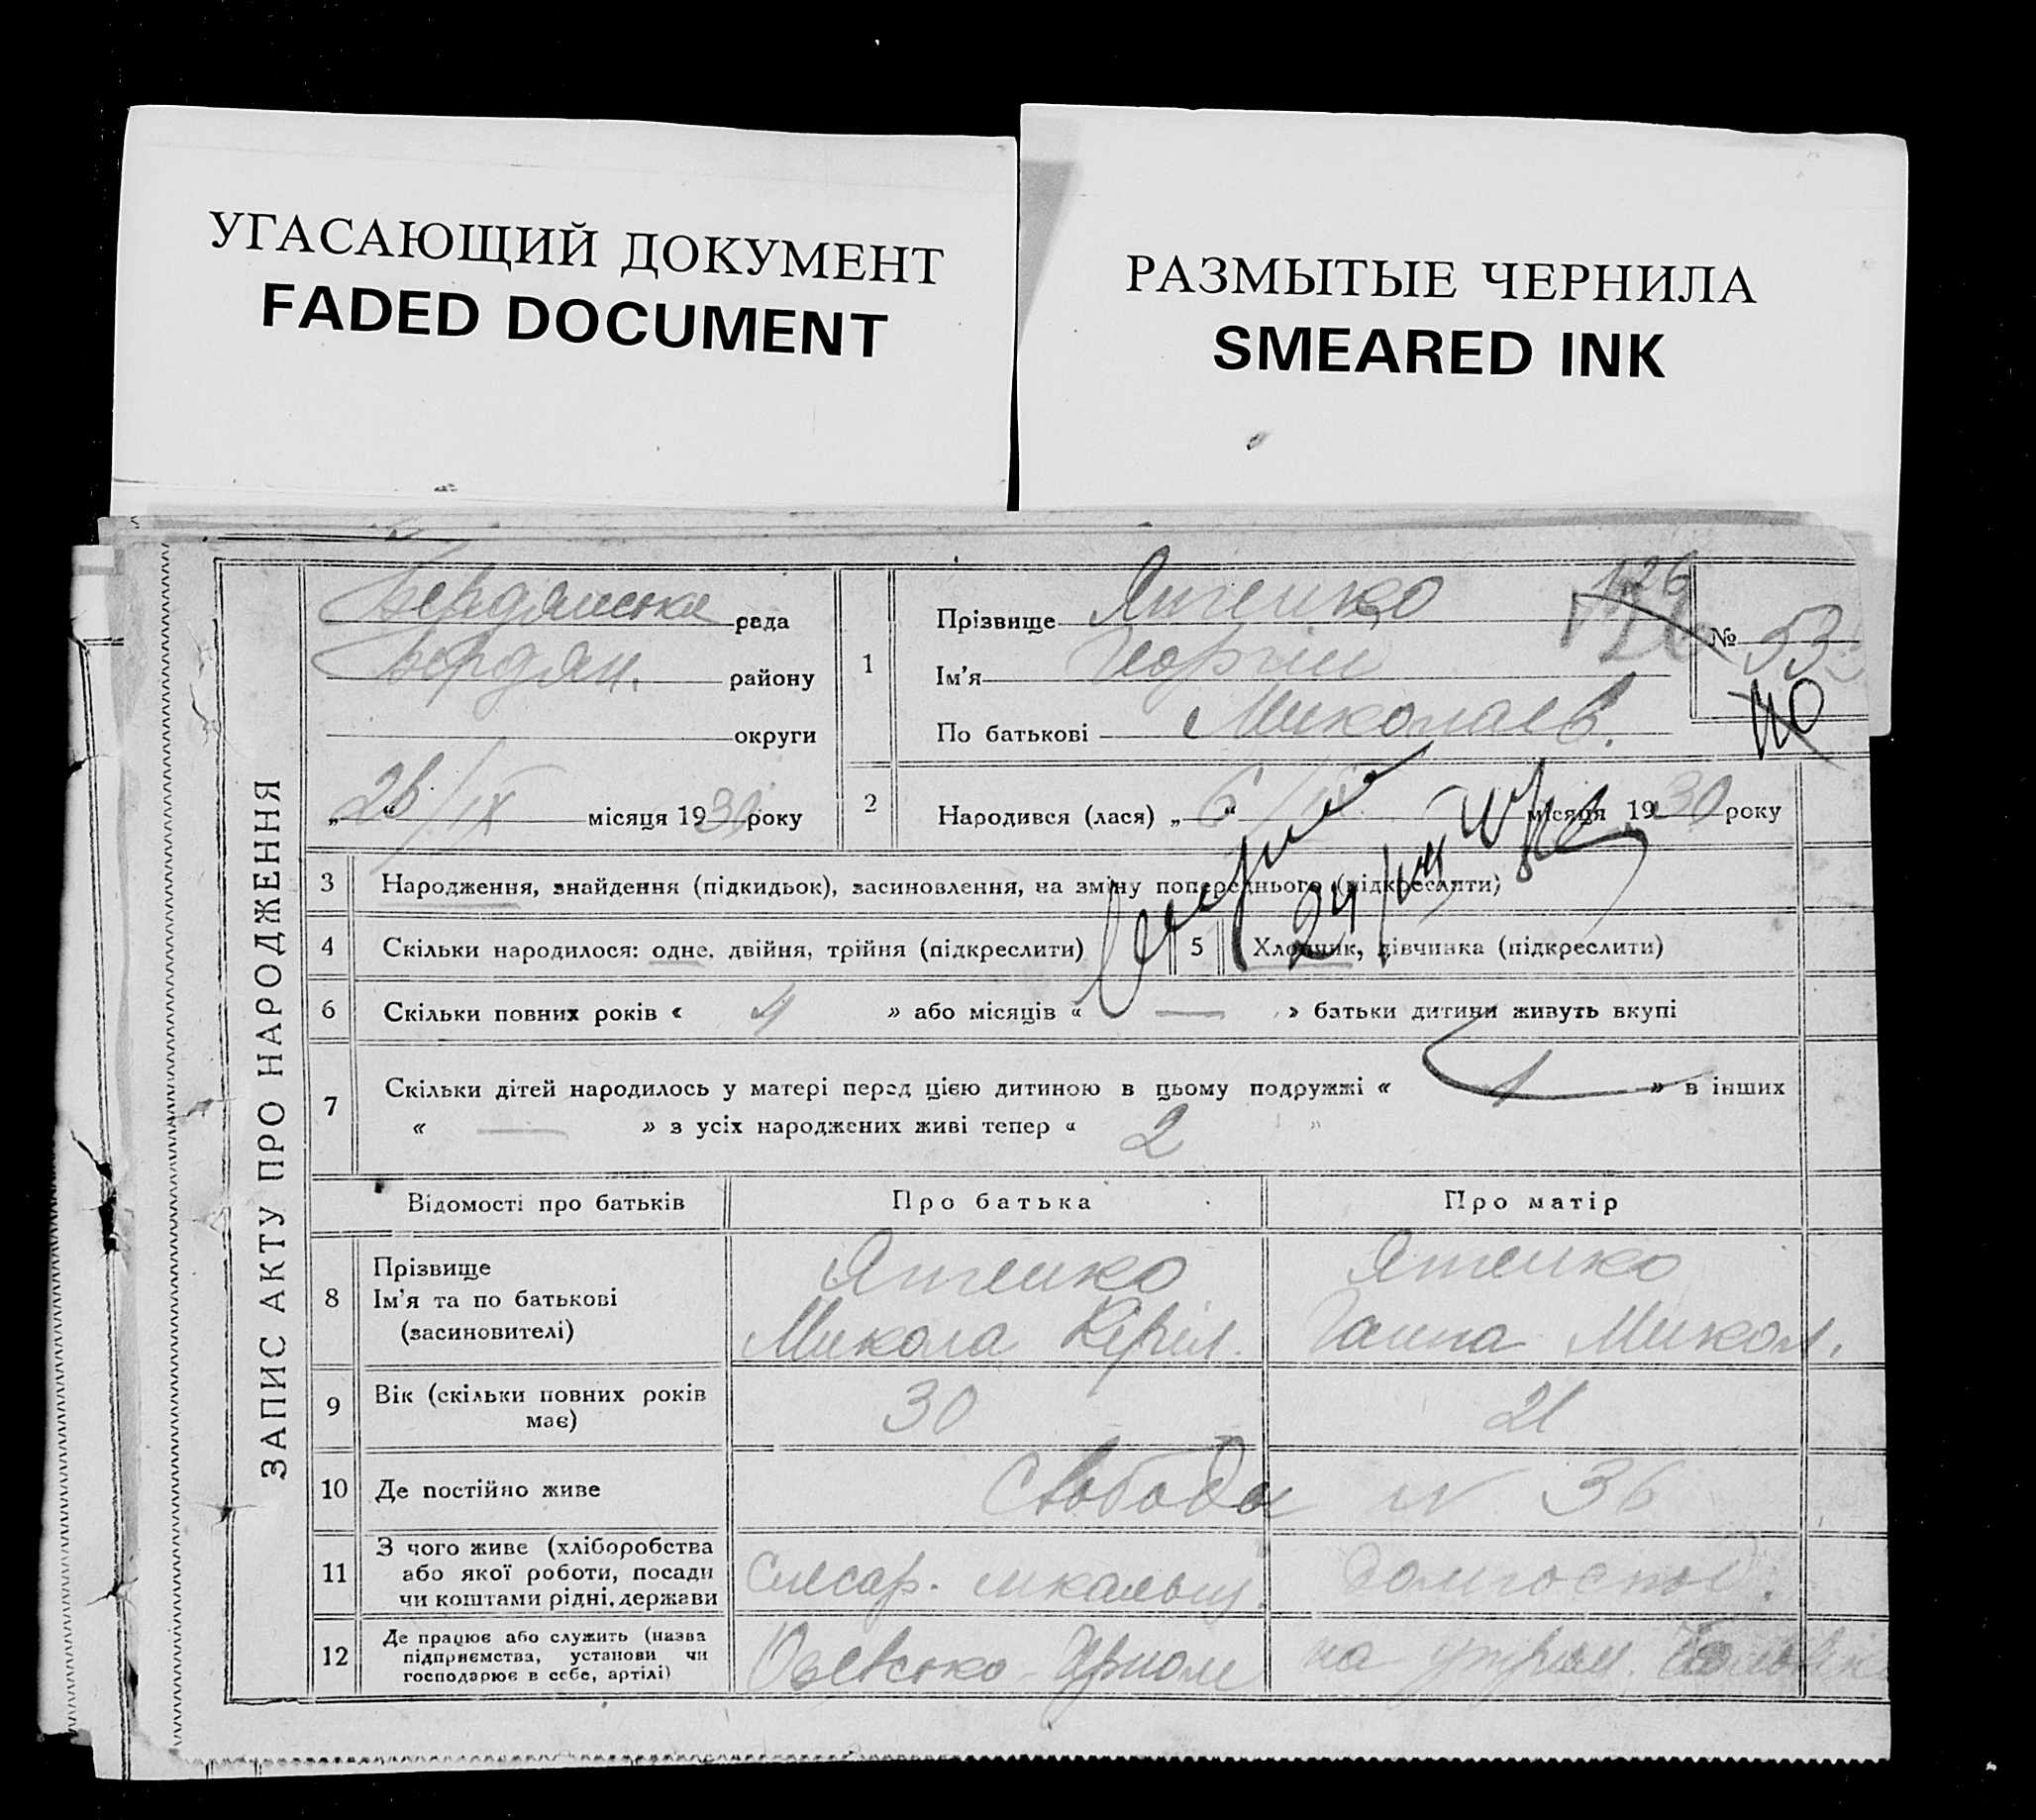 УГАСАЮЩИЙ ДОКУМЕНТ
FADED DOCUMENT
РАЗМЫТЫЕ ЧЕРНИЛА
SMEARED INK
ЗАПИС АКТУ ПРО НАРОДЖЕННЯ
Бердянська рада
Бердян. району
округи
„26“/IX місяця 1930 року
1
Прізвище Ятенко
Ім'я Георгій
По батькові Миколаєв.
126
№ 53
2 Народився (лася) „6“/IX місяця 1930 року
3 Народження, знайдення (підкидьок), засиновлення, на зміну попереднього (підкреслити)
4 Скільки народилося: одне, двійня, трійня (підкреслити)
5 Хлопчик, дівчинка (підкреслити)
6 Скільки повних років « 4 » або місяців « — » батьки дитини живуть вкупі
7 Скільки дітей народилось у матері перед цією дитиною в цьому подружжі « 1 » в інших
« — » з усіх народжених живі тепер « 2 »
Відомості про батьків Про батька Про матір
8 Прізвище Ятенко Ятенко
Ім'я та по батькові Микола Кіріл. Ганна Микол.
(засиновителі)
9 Вік (скільки повних років 30 21
має)
10 Де постійно живе Свободи N 36
11 З чого живе (хліборобства
або якої роботи, посади Слесар. домгоспод.
чи коштами рідні, держави
12 Де працює або служить (назва
підприємства, установи чи на утрим.
господарює в себе, артілі)